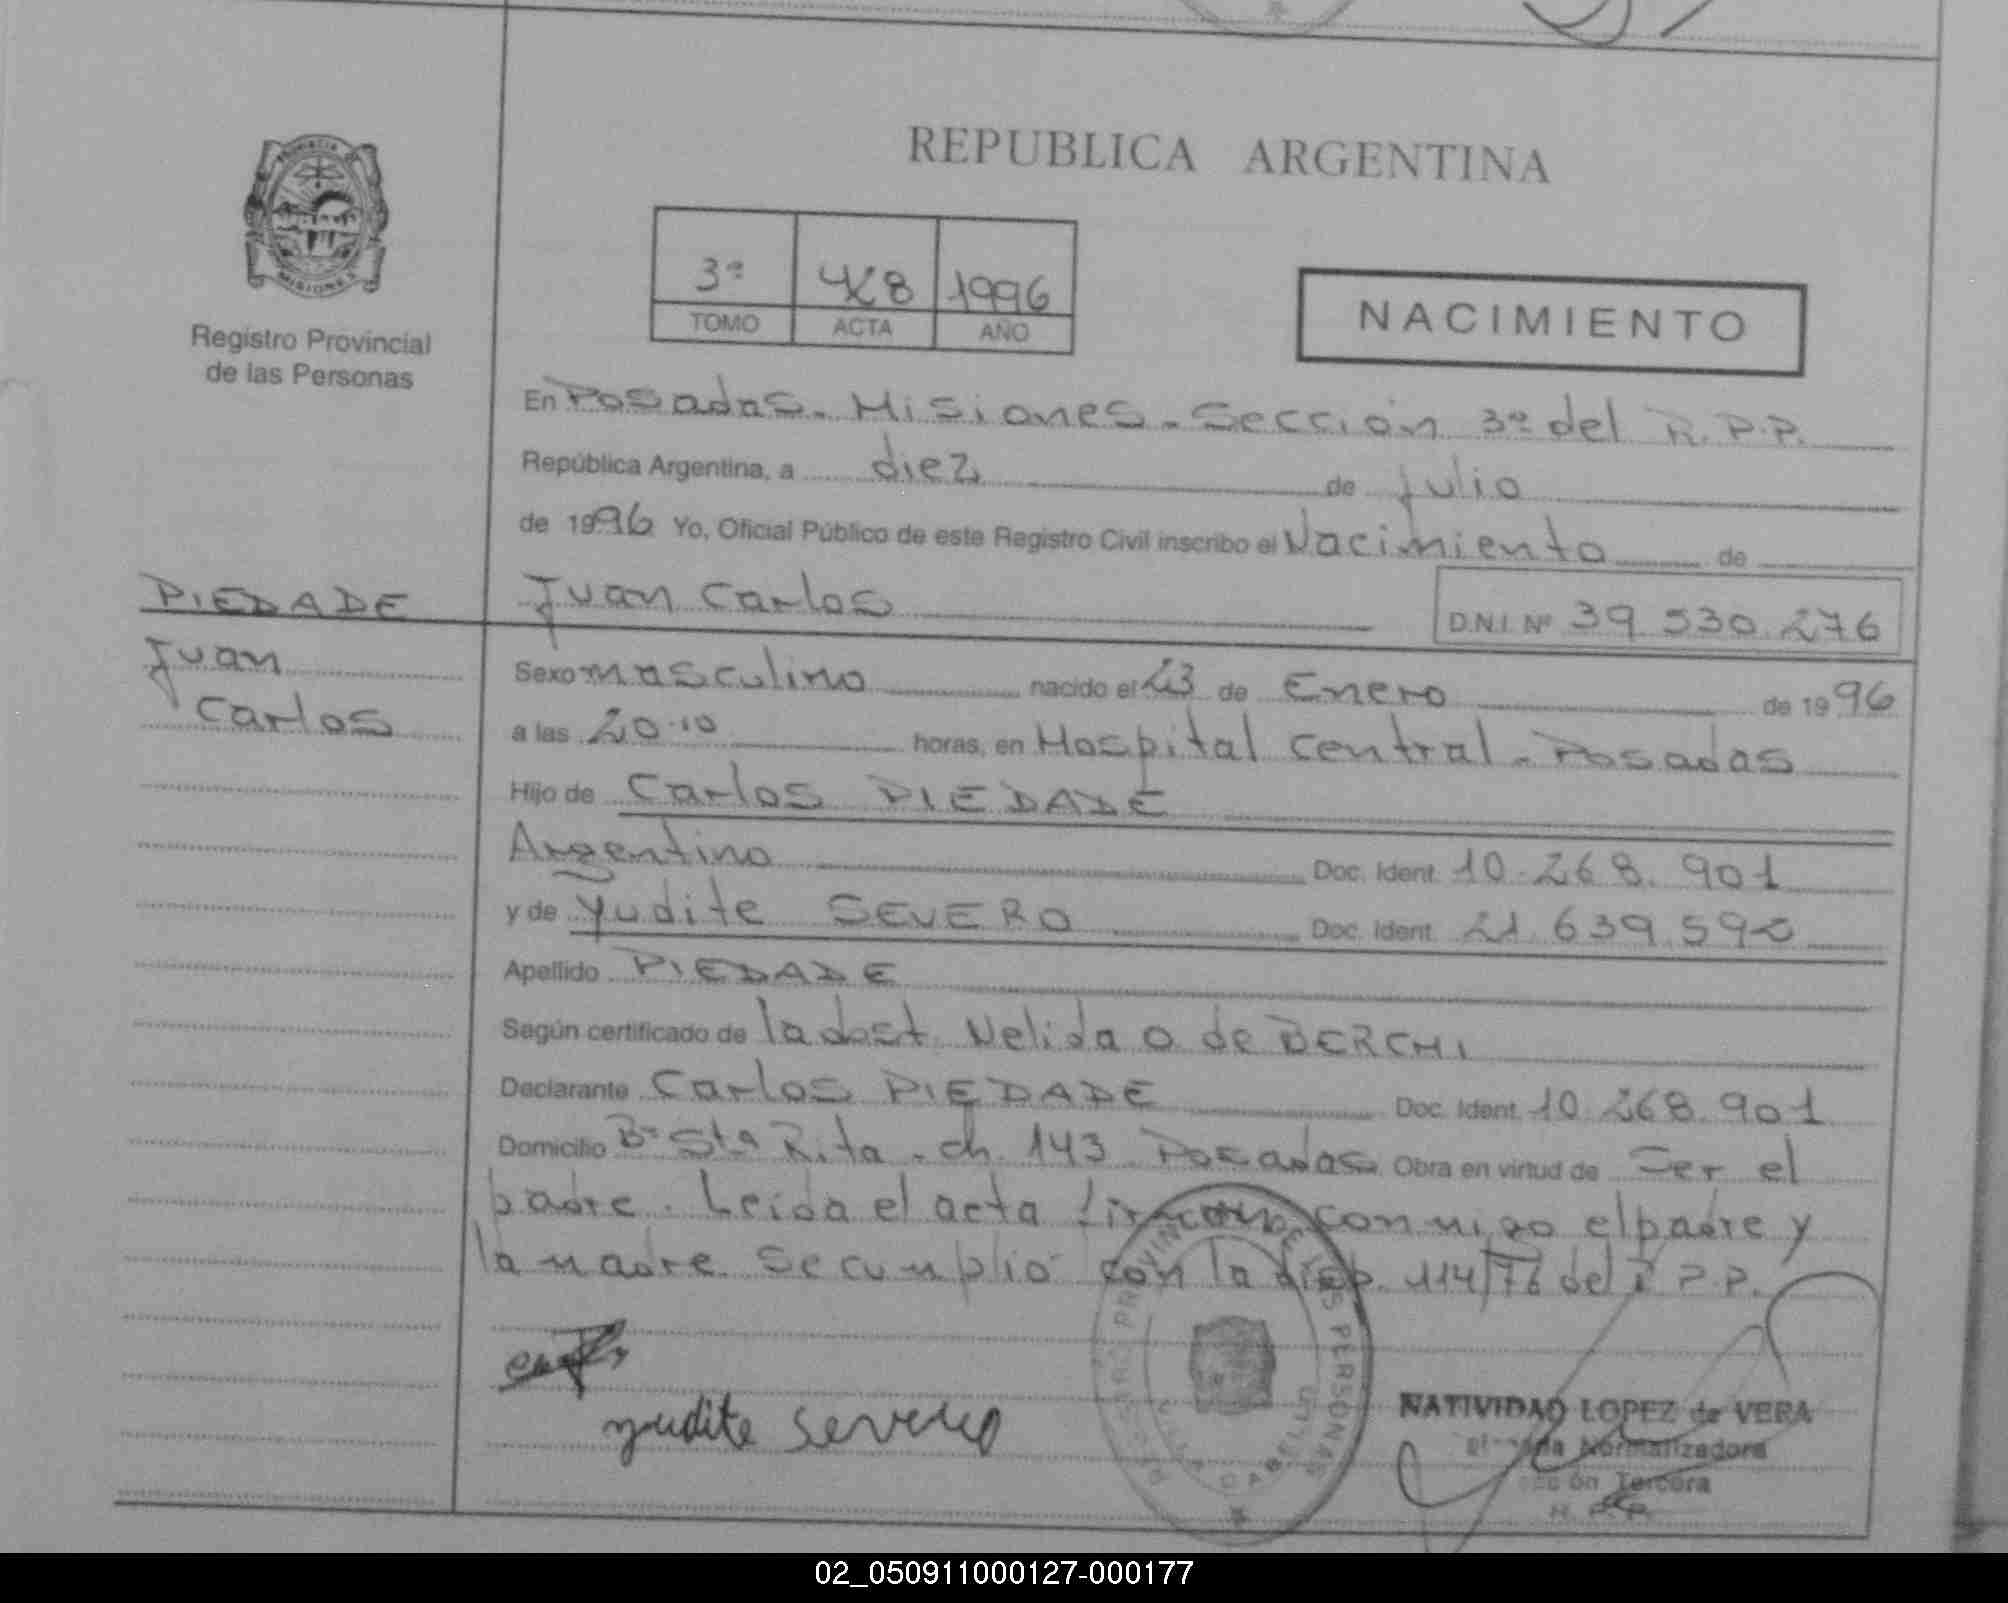 REPUBLICA ARGENTINA
PROVINCIA DE
MISIONES
Registro Provincial
de las Personas
3ª 428 1996
TOMO ACTA AÑO
NACIMIENTO
En Posadas. Misiones. Sección 3ª del R.P.P.
República Argentina, a diez de julio
de 1996 Yo, Oficial Público de este Registro Civil inscribo el Nacimiento de
PIEDADE
Juan
Carlos
Juan Carlos D.N.I. Nº 39 530 276
Sexo masculino nacido el 23 de Enero de 1996
a las 20.10 horas, en Hospital Central. Posadas
Hijo de Carlos PIEDADE
Argentino Doc. Ident. 10.268.901
y de Yudite SEVERO Doc. Ident. 21 639 592
Apellido PIEDADE
Según certificado de la obst. Nelida O de BERCHI
Declarante Carlos PIEDADE Doc. Ident. 10 268.901
Domicilio Bº Sta Rita. ch. 143 Posadas Obra en virtud de Ser el
padre. Leida el acta firman conmigo el padre y
la madre. Se cumplió con la disp. 114/76 del R.P.P.
yudite severo
NATIVIDAD LOPEZ de VERA
Normalizadora
Tercera
R. P. P.
02_050911000127-000177